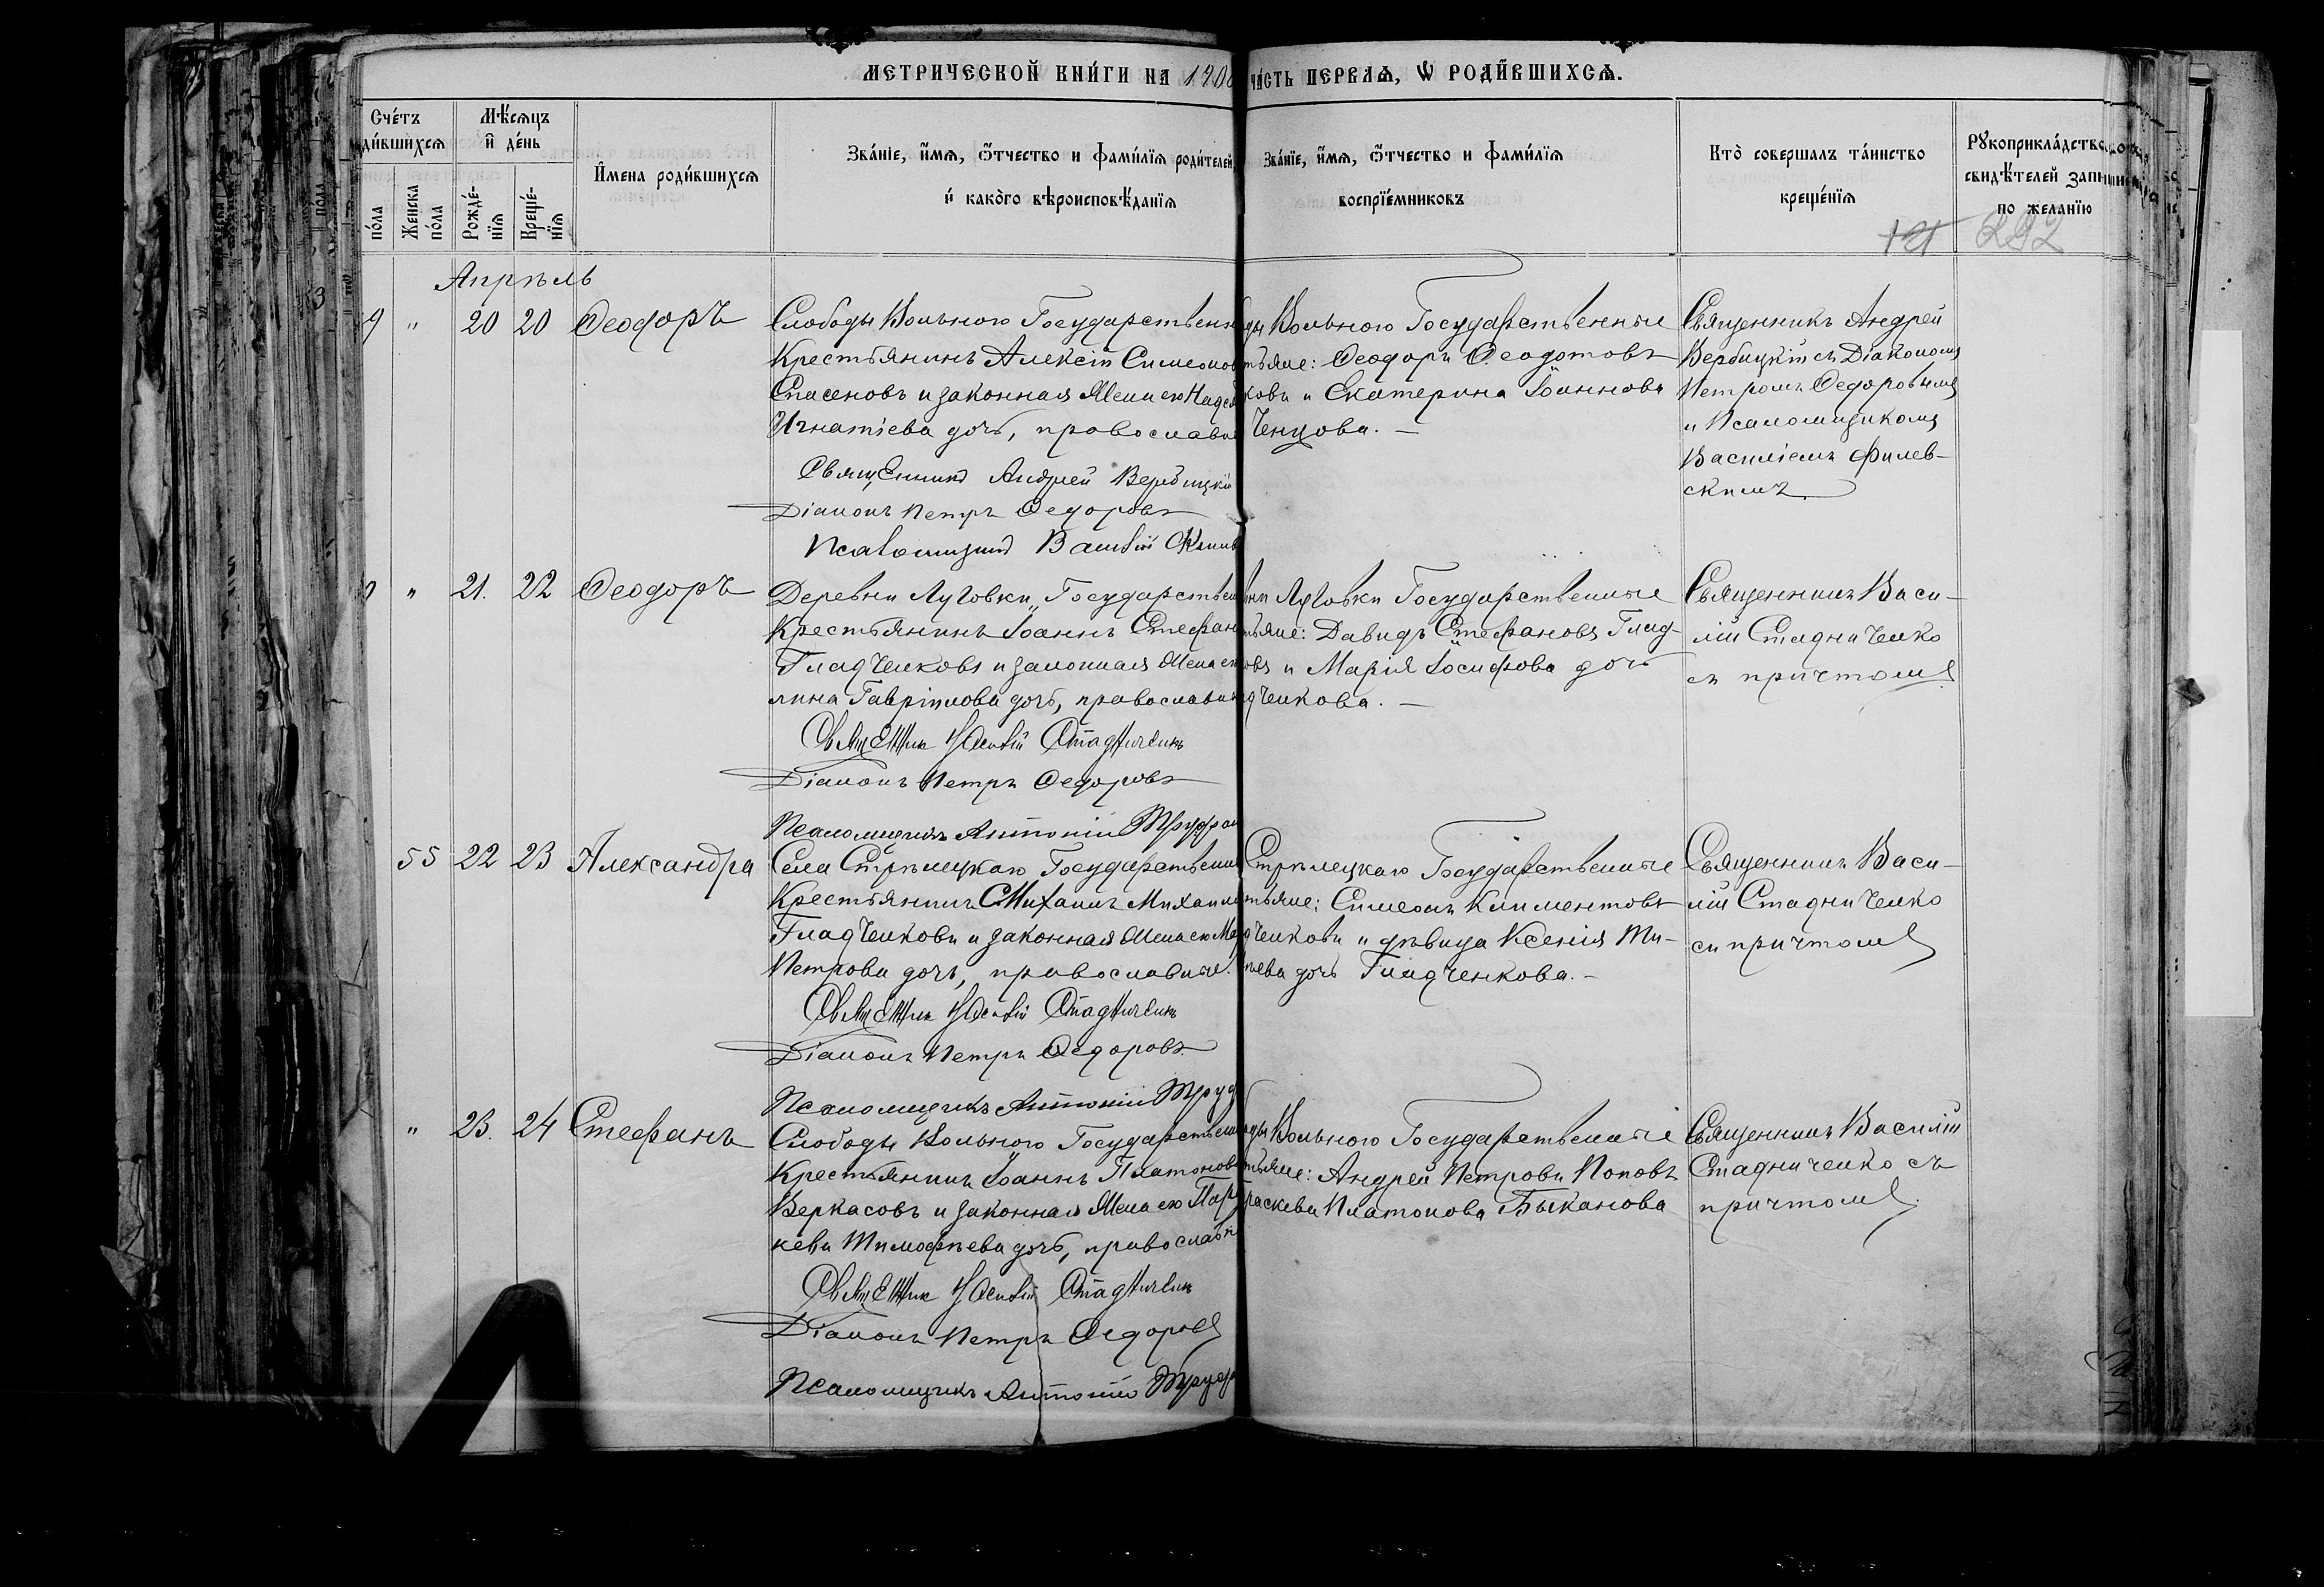 МЕТРИЧЕСКОЙ КНИ́ГИ НА 1900 ЧА́СТЬ ПЕРВАѦ, Ѡ РОДИ́ВШИХСѦ.
Сче́тъ
ди́вшихсѧ
по́ла
Женска
по́ла
Мѣ́сѧцъ
и҆ де́нь
Рожде́-
нїѧ
Креще́-
нїѧ
И҆мена роди́вшихсѧ
Зва́нїе, и҆́мѧ, ѻ҆́тчество и фами́лїѧ роди́телей,
и҆ како́го вѣроисповѣ́данїѧ
Зва́нїе, и҆́мѧ, ѻ҆́тчество и фами́лїѧ
воспрїе́мниковъ
Кто̀ совершалъ та́инство
креще́нїѧ
Рꙋкоприкла́дство
свидѣ́телей запи
по желанїю
292
Апрѣль
9 " 20 20 Ѳеодоръ
Слободы Вольного Государственн
Крестьянинъ Алексій Симеонов
Спасеновъ и законная жена его Надеж
Игнатіева дочь, православн
Священникъ Андрей Вербицкій
Діаконъ Петръ Ѳедоровъ
Псаломщикъ Василій Филев
ды Вольного Государственные
тьяне: Ѳеодоръ Ѳеодотовъ
ковъ и Екатерина Іоаннова
Ченцова. —
Священникъ Андрей
Вербицкій съ Діакономъ
Петромъ Ѳедоровымъ
и Псаломщикомъ
Василіемъ Филев-
скимъ
" 21. 22 Ѳеодоръ
Деревни Луговки, Государствен
Крестьянинъ Іоаннъ Стефан
Гладченковъ и законная жена ег
лина Гавріилова дочь, православн
Священник Василій Стадниченко
Діаконъ Петръ Ѳедоровъ
Псаломщикъ Антоній Труфан
вни Луговки Государственные
тьяне: Давидъ Стефановъ Глад-
овъ и Марія Іосифова дочь
дченкова. —
Священникъ Васи-
лій Стадниченко
съ причтомъ
55 22 23 Александра
Села Стрѣлецкаго Государственн
Крестьянинъ Михаилъ Михаило
Гладченковъ и законная жена его Ма
Петрова дочь, православные.
Священник Василій Стадниченко
Діаконъ Петръ Ѳедоровъ
Псаломщикъ Антоній Труф
Стрѣлецкаго Государственные
тьяне: Симеонъ Климентовъ
дченковъ и дѣвица Ксенія Ти-
ѣева дочь Гладченкова. —
Священникъ Васи-
лій Стадниченко
съ причтомъ
" 23. 24 Стефанъ
Слободы Вольного Государственн
Крестьянинъ Іоаннъ Платонов
Веркасовъ и законная жена его Пар
кева Тимофѣева дочь, православн
Священник Василій Стадниченко
Діаконъ Петръ Ѳедоровъ
Псаломщикъ Антоній Труф
ды Вольного Государственные
тьяне: Андрей Петровъ Поповъ
раскева Платонова Быканова
Священникъ Василій
Стадниченко съ
причтомъ